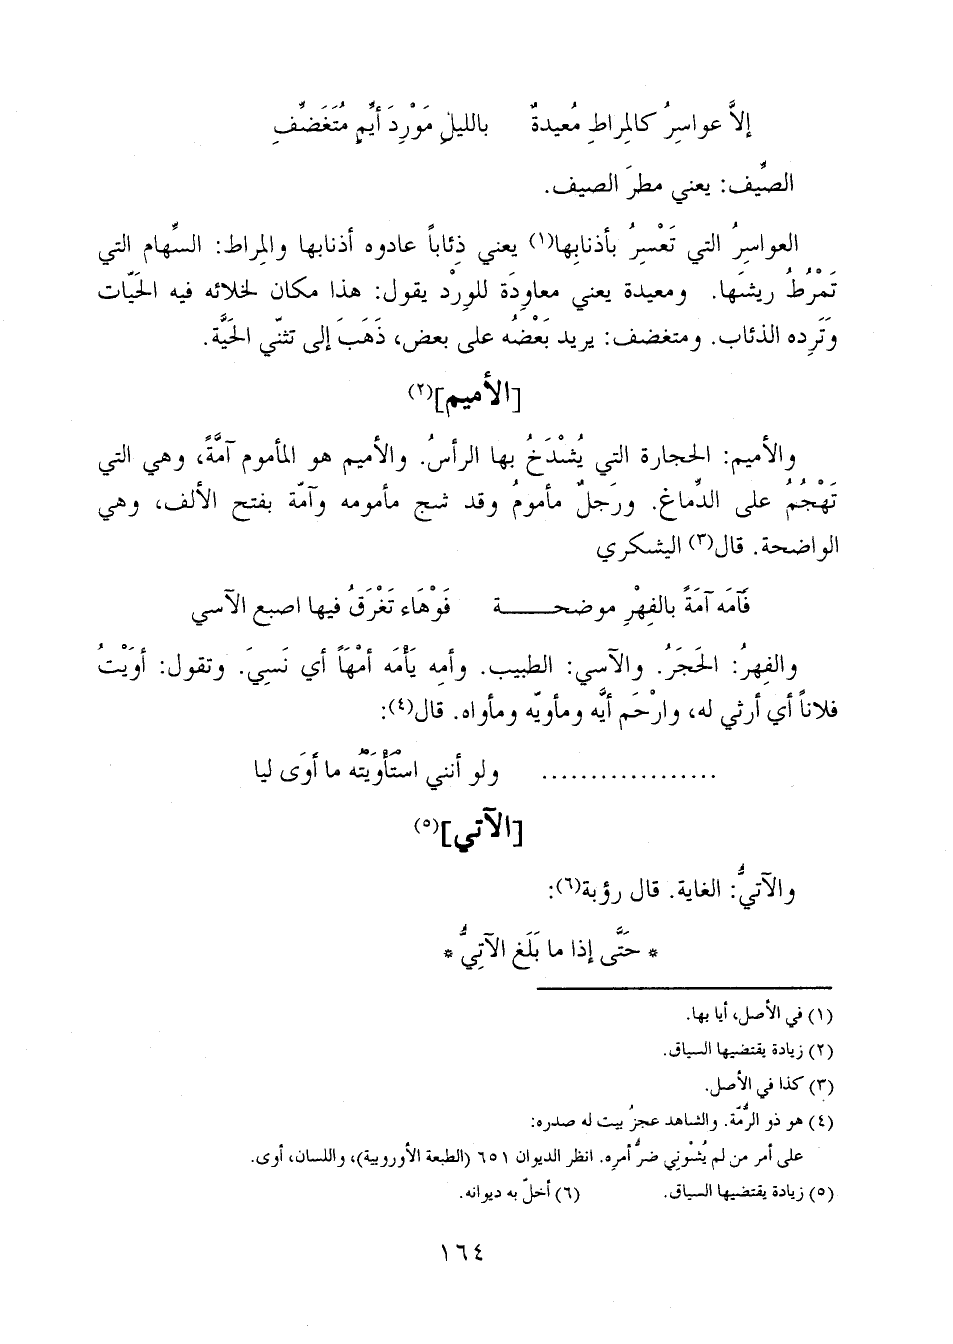 إلاَّ عواسِرُ كالمِراطِ مُعيدةٌ بالليلِ مَوْرِدَ أيِّمٍ مُتَغَضِّفِ
الصِّيف: يعني مطرَ الصيف.
العواسِرُ التي تَعْسِرُ بأذنابِها(١) يعني ذِئاباً عادوه أذنابها والمِراط: السِّهام التي
تَمْرُطُ ريشَها. ومعيدة يعني معاودَة للوِرْد يقول: هذا مكان لخلائه فيه الحَيّات
وَتَرِده الذئاب. ومتغضف: يريد بَعْضُه على بعض، ذَهَبَ إلى تثنّي الحَيَّة.
[الأميم](٢)
والأميم: الحجارة التي يُشْدَخُ بها الرأسُ. والأميم هو المأموم آمَّةً، وهي التي
تَهْجُمُ على الدِّماغ. ورَجلٌ مأمومُ وقد شج مأمومه وآمّة بفتح الألف، وهي
الواضحة. قال(٣) اليشكري
فَآمَه آمَةً بالفِهْرِ موضحـــــة فَوْهَاء تَغْرَقُ فيها اصبع الآسي
والفِهرُ: الحَجَرُ. والآسي: الطبيب. وأمِه يَأْمَه أمْهَاً أي نَسِيَ. وتقول: أوَيْتُ
فلاناً أي أرثي له، وارْحَم أيَّه ومأويّه ومأواه. قال(٤):
.................. ولو أنني استَأْوَيْتُه ما أوَى ليا
[الآتي](٥)
والآتيُّ: الغاية. قال رؤبة(٦):
* حَتَّى إذا ما بَلَغ الآتِيُّ *
(١) في الأصل، أيا بها.
(٢) زيادة يقتضيها السياق.
(٣) كذا في الأصل.
(٤) هو ذو الرُّمّة. والشاهد عجزُ بيت له صدره:
على أمر من لم يُشْوِني ضرُّ أمرِه. انظر الديوان ٦٥١ (الطبعة الأوروبية)، واللسان، أوى.
(٥) زيادة يقتضيها السياق. (٦) أخلّ به ديوانه.
١٦٤